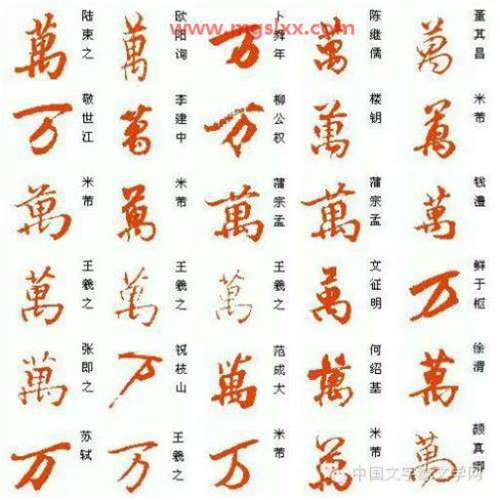 www.mgslxx.com
萬 陆柬之 萬 欧阳询 万 卜舜年 萬 陈继儒 萬 董其昌
万 敬世江 萬 李建中 万 柳公权 萬 楼钥 萬 米芾
萬 米芾 萬 米芾 萬 蒲宗孟 萬 蒲宗孟 萬 钱澧
萬 王羲之 萬 王羲之 萬 王羲之 萬 文征明 万 鲜于枢
萬 张即之 万 祝枝山 萬 范成大 萬 何绍基 萬 徐渭
万 苏轼 万 王羲之 万 米芾 萬 米芾 萬 颜真卿
中国文字 文学网